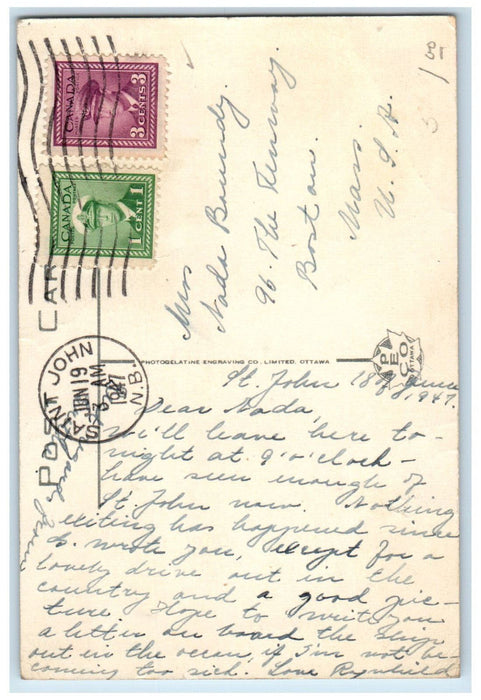 POST CAR
CANADA
3 CENTS 3
CANADA
1 CENT 1
SAINT JOHN
JUN 19
AM
1947
N.B.
Miss
Nada
96 The Fenway
Boston.
Mass.
U. S. A.
1 00
PHOTOGELATINE ENGRAVING CO., LIMITED, OTTAWA
PECO
OTTAWA
St. John 18 June
1947.
Dear Nada,
We'll leave here to-
night at 9 o'clock-
have seen enough of
St. John now. Nothing
exiting has happened since
I wrote you, except for a
lovely drive out in the
country and a good pic-
ture Hope to write you
a letter on board the ship
out in the ocean, if I'm not be-
coming too sick. Love